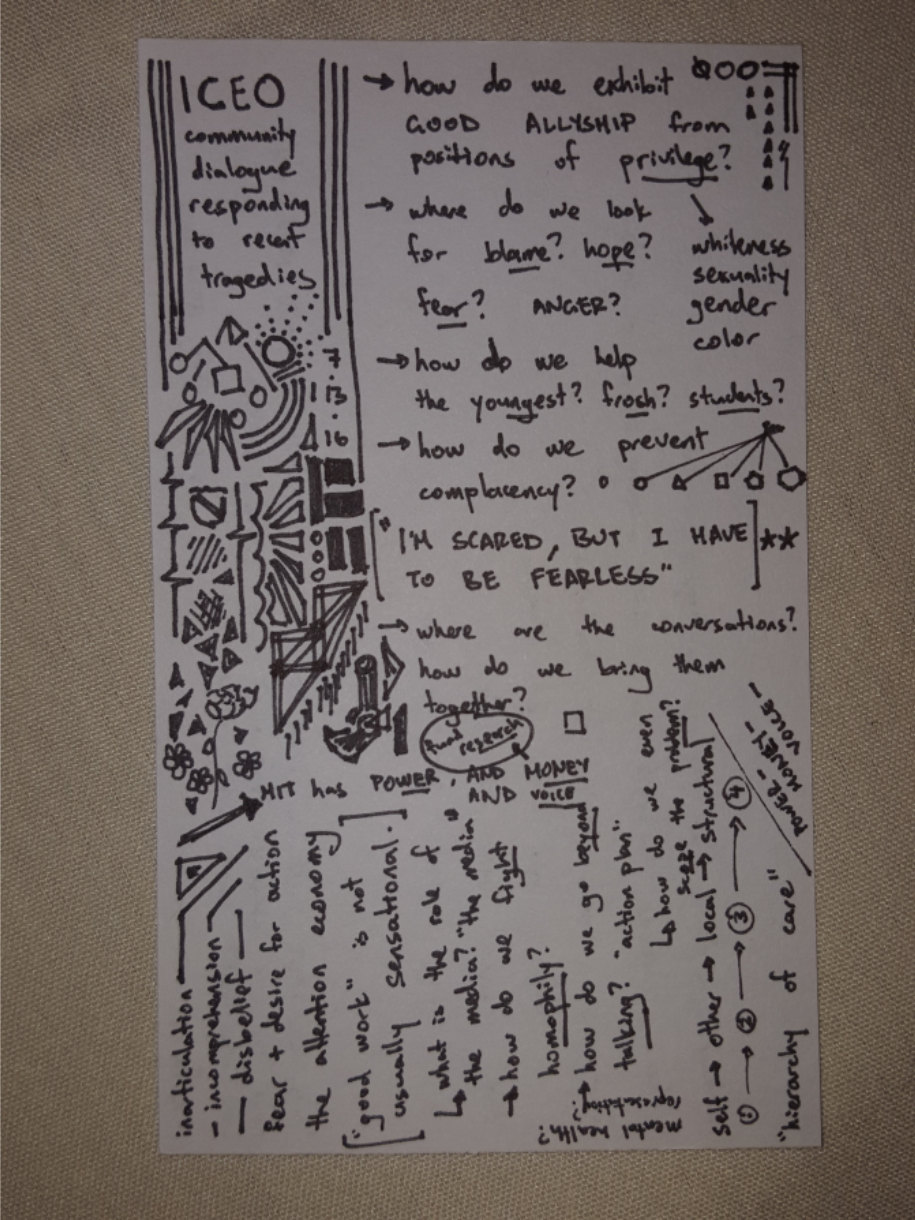 ICEO
community
dialogue
responding
to recent
tragedies
7
13
16
→ how do we exhibit
GOOD ALLYSHIP from
positions of privilege?
→ where do we look
for blame? hope?
fear? ANGER?
whiteness
sexuality
gender
color
→ how do we help
the youngest? frosh? students?
→ how do we prevent
complacency?
["I'M SCARED, BUT I HAVE
TO BE FEARLESS"] **
→ where are the conversations?
how do we bring them
together?
fund
research
MIT has POWER, AND MONEY
AND VOICE
inarticulation
- incomprehension
— disbelief
fear + desire for action
the attention economy
["good work" is not
usually sensational.]
↳ what is the role of
the media? "the media"
→ how do we fight
homophily?
→ how do we go beyond
talking? "action plan"
↳ how do we even
the problem?
mental health?
representation?
self → other → local → structural
① → ② → ③ → ④
"hierarchy of care"
POWER -
MONEY -
VOICE -